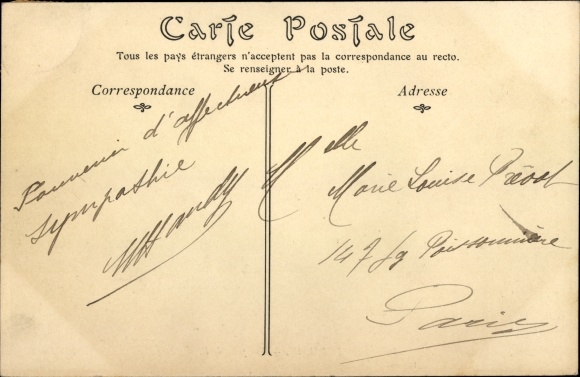 Carte Postale
Tous les pays étrangers n'acceptent pas la correspondance au recto.
Se renseigner à la poste.
Correspondance
Adresse
Souvenir d'affectueuse
sympathie
Melle
Marie Louise Prévost
147 fg Poissonnière
Paris